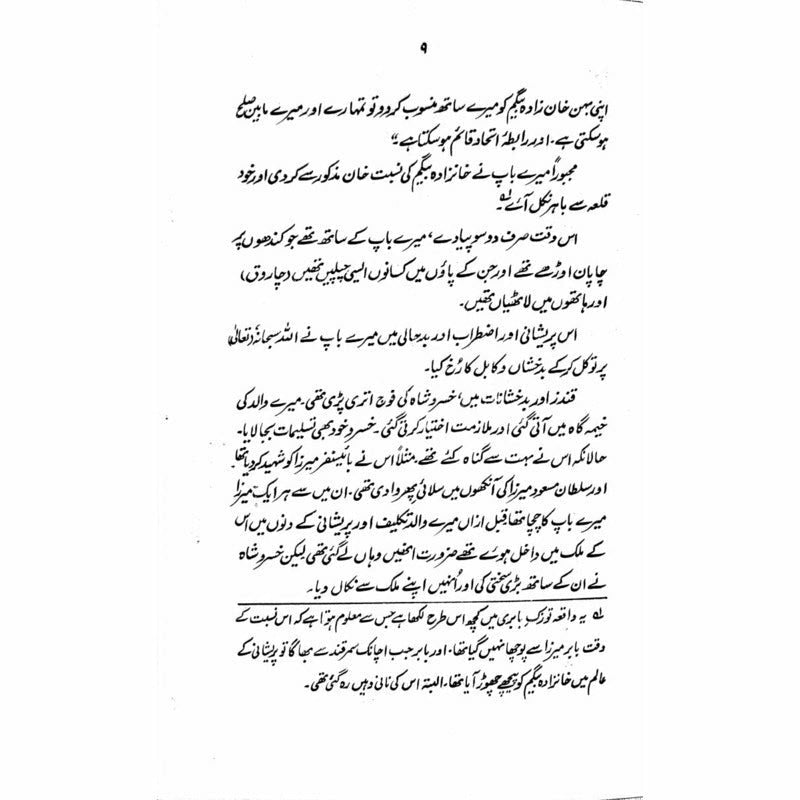 ۹
اپنی بہن خان زادہ بیگم کو میرے ساتھ منسوب کر دو تو تمہارے اور میرے مابین صلح
ہو سکتی ہے۔ اور رابطۂ اتحاد قائم ہو سکتا ہے۔"
مجبوراً میرے باپ نے خانزادہ بیگم کی نسبت خان مذکور سے کر دی اور خود
قلعہ سے باہر نکل آئے لہ
اس وقت صرف دو سو پیادے، میرے باپ کے ساتھ تھے جو کندھوں پر
چاپان اوڑھے تھے اور جن کے پاؤں میں کسانوں ایسی چپلیں تھیں (چاروق)
اور ہاتھوں میں لاٹھیاں تھیں۔
اس پریشانی اور اضطراب اور بدحالی میں میرے باپ نے اللہ سبحانہٗ (تعالیٰ)
پر توکل کر کے بدخشاں و کابل کا رُخ کیا۔
قندز اور بدخشانات میں، خسرو شاہ کی فوج اتری پڑی تھی۔ میرے والد کی
خیمہ گاہ میں آتی گئی اور ملازمت اختیار کرتی گئی۔ خسرو خود بھی تسلیمات بجا لایا۔
حالانکہ اس نے بہت سے گناہ کئے تھے۔ مثلاً اس نے بائیسنغر میرزا کو شہید کر دیا تھا۔
اور سلطان مسعود میرزا کی آنکھوں میں سلائی پھروا دی تھی۔ ان میں سے ہر ایک میرزا
میرے باپ کا چچا تھا قبل ازاں میرے والد تکلیف اور پریشانی کے دنوں میں اس
کے ملک میں داخل ہوئے تھے ضرورت انھیں وہاں لے گئی تھی لیکن خسرو شاہ
نے ان کے ساتھ بڑی سختی کی اور اُنہیں اپنے ملک سے نکال دیا۔
لہ یہ واقعہ توزک بابری میں کچھ اس طرح لکھا ہے جس سے معلوم ہوتا ہے کہ اس نسبت کے
وقت بابر میرزا سے پوچھا نہیں گیا تھا۔ اور بابر جب اچانک سمرقند سے بھاگا تو پریشانی کے
عالم میں خانزادہ بیگم کو پیچھے چھوڑ آیا تھا۔ البتہ اس کی نانی وہیں رہ گئی تھی۔